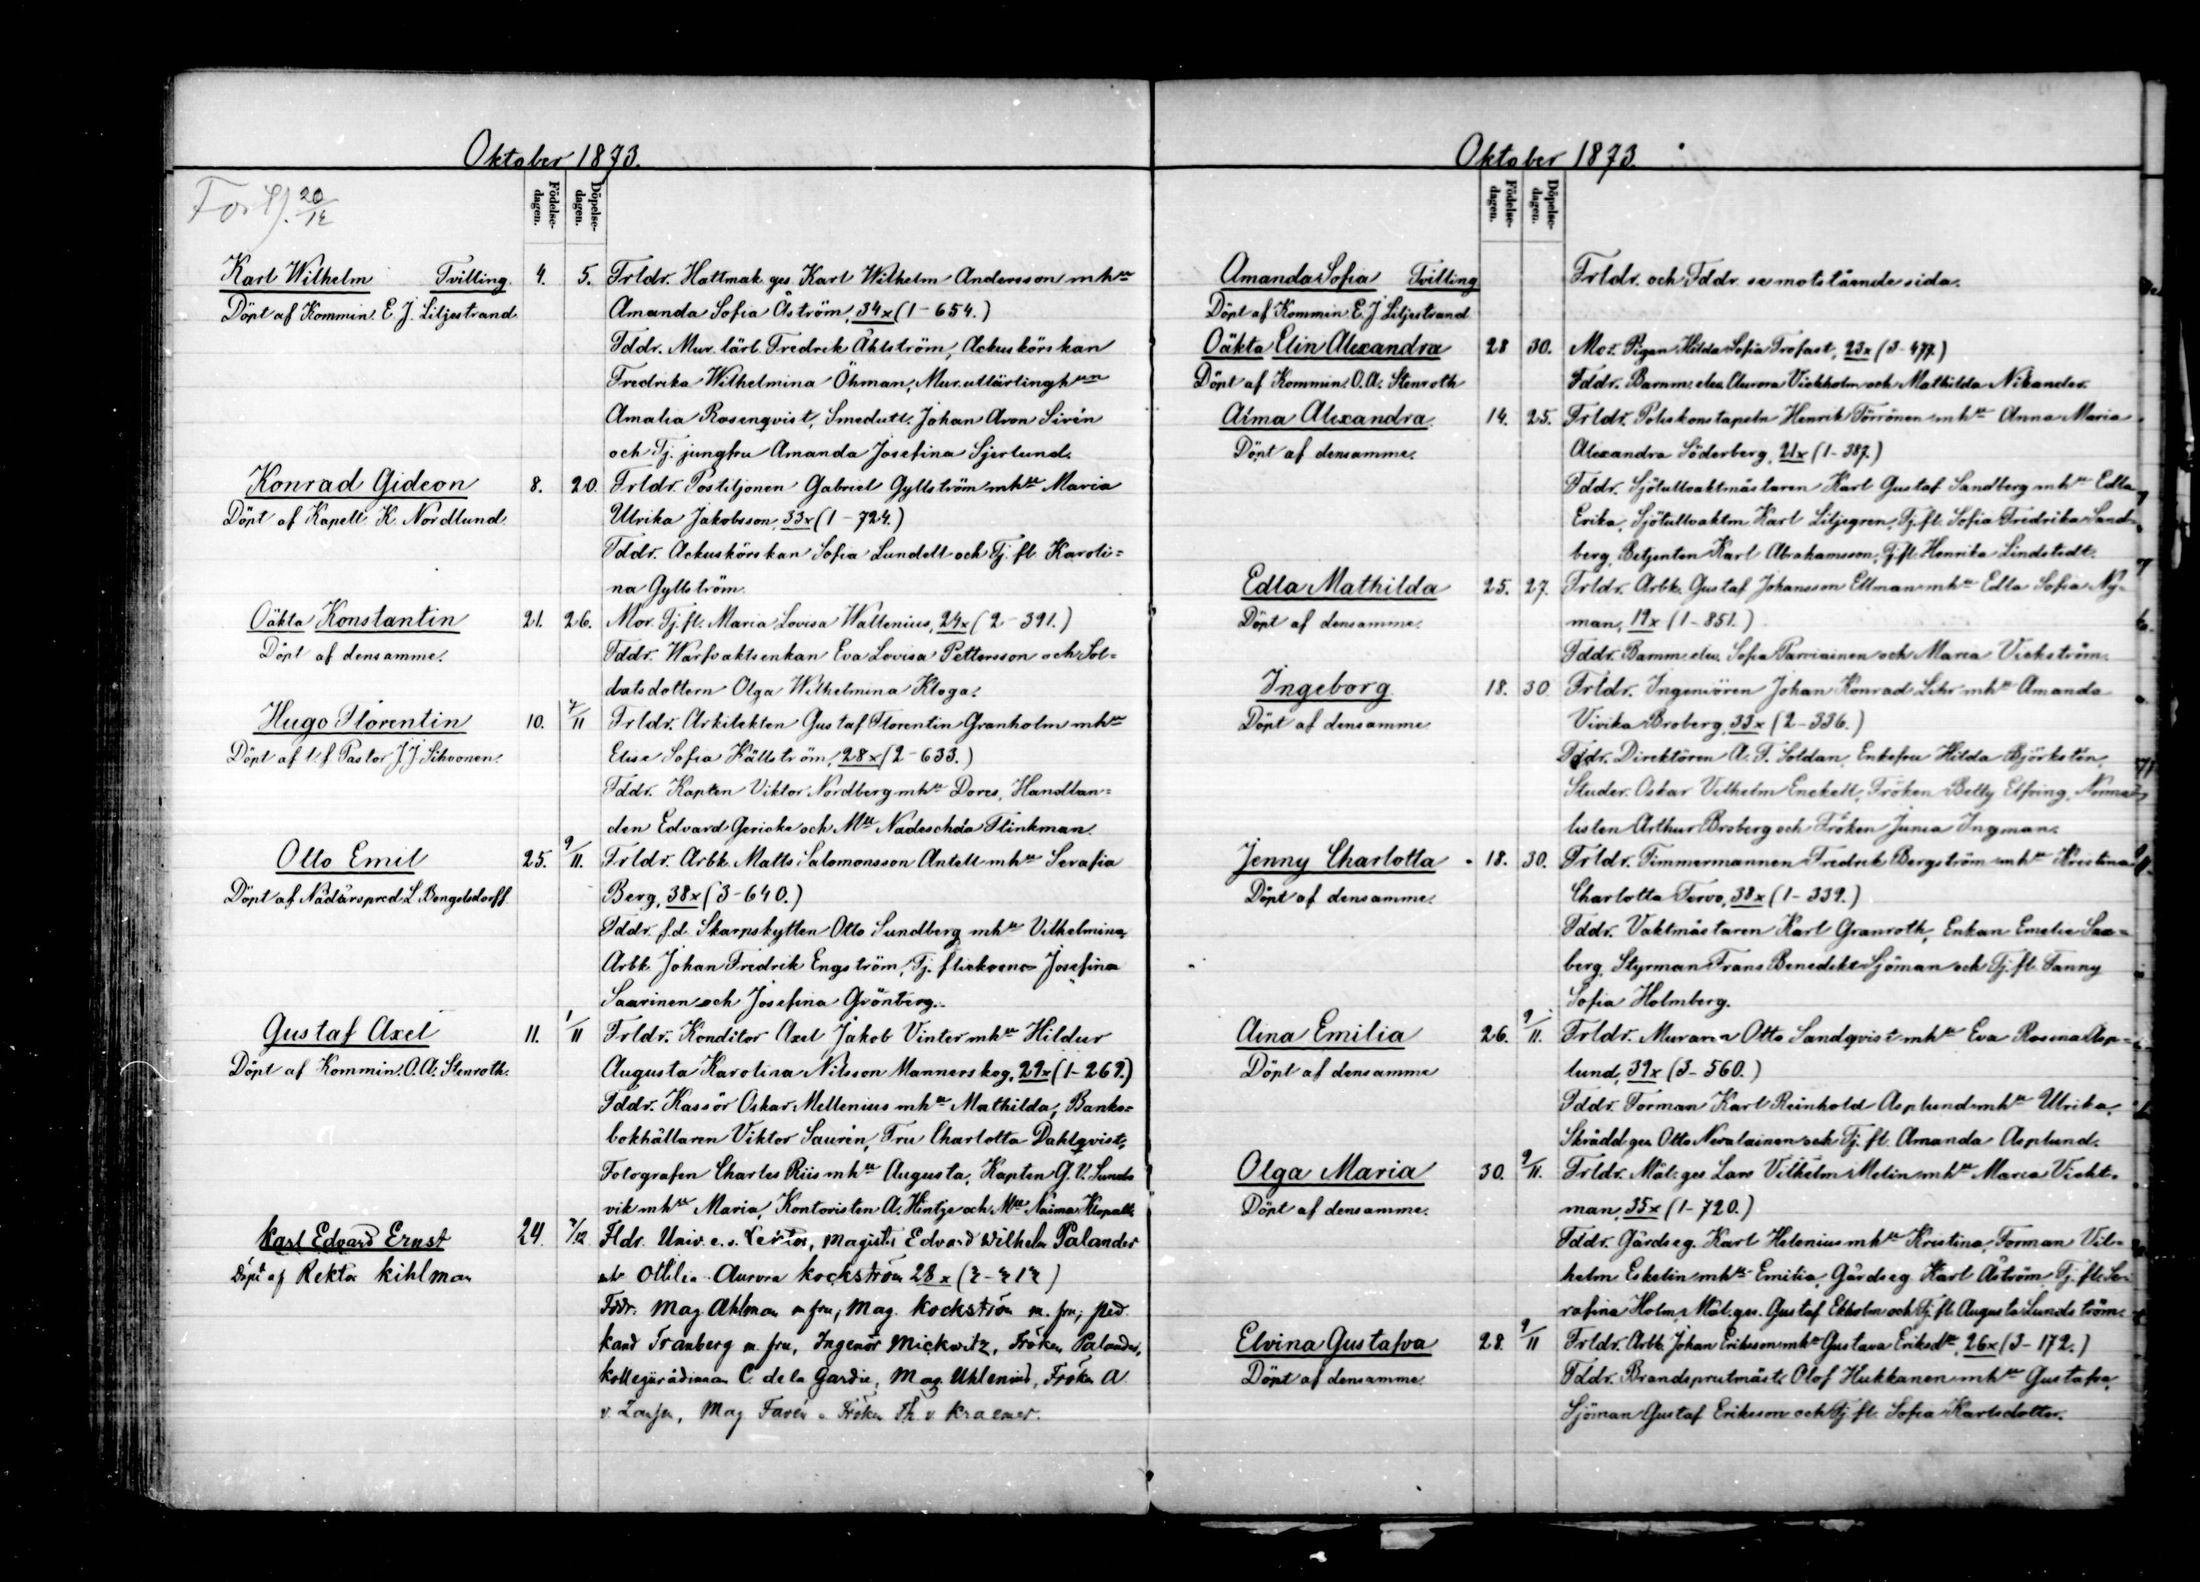 Oktober 1873.
Forts. 20/12
Födelse-dagen.
Döpelse-dagen.
Karl Wilhelm Tvilling. 4. 5. Frldr. Hattmak. ges. Karl Wilhelm Andersson mhu
Döpt af Kommin. E. J. Liljestrand Amanda Sofia Åström, 34x (1-654.)
Fddr. Mur. lärl. Fredrik Åhlström, Ackuskörskan
Fredrika Wilhelmina Öhman, Mur.utlärlingh
Amalia Rosenqvist, Smedutl. Johan Aron Sirén
och Tj. jungfru Amanda Josefina Sjerlund.
Konrad Gideon 8. 20. Frldr. Postiljonen Gabriel Gyllström mhu Maria
Döpt af Kapell. K. Nordlund. Ulrika Jakobsson, 33x (1-724.)
Fddr. Ackuskörskan Sofia Lundell och Tj. fl. Karoli=
na Gyllström.
Oäkta Konstantin 21. 26. Mor. Tj. fl. Maria Lovisa Wallenius, 24x (2-391.)
Döpt af densamme. Fddr. Warfvaktsenkan Eva Lovisa Pettersson och Sol=
datsdottern Olga Wilhelmina Kloga.
Hugo Florentin 10. 7/11 Frldr. Arkitekten Gustaf Florentin Granholm mhu
Döpt af t. f. Pastor J. J. Sihvonen. Elise Sofia Källström, 28x (2-633.)
Fddr. Kapten Viktor Nordberg mhu Dores, Handlan=
den Edvard Gericke och Mll Nadeschda Flinkman.
Otto Emil 25. 9/11. Frldr. Arbk. Matts Salomonsson Antell mhu Serafia
Döpt af Nådårspred. L. Bengelsdorff Berg, 38x (3-640.)
Fddr. f.d. Skarpskytten Otto Sundberg mhu Vilhelmina,
Arbk. Johan Fredrik Engström, Tj. flickorna Josefina
Saarinen och Josefina Grönberg.
Gustaf Axel 11. 1/11 Frldr. Konditor Axel Jakob Vinter mhu Hildur
Döpt af Kommin. O. A. Stenroth. Augusta Karolina Nilsson Mannerskog, 29x (1-269.)
Fddr. Kassör Oskar Mellenius mhu Mathilda, Banko=
bokhållaren Viktor Saurén, Fru Charlotta Dahlqvist,
Fotografen Charles Riis mhu Augusta, Kapten G. V. Sunds
vik mhu Maria, Kontoristen A. Hintze och Mll Naima
Karl Edvard Ernst 24. 7/12 Fldr. Univ. e. o. Lektor, magister Edvard Wilhelm Palander
Döpt af Rektor Kihlman mh Ottilia Aurora Kockström 28x
Fddr. Mag. Ahlman m fru, Mag. Kockström m. fru, ped.
kand Tranberg m. fru, Ingenör Mickwitz, Fröken Palander,
Kollegiirådinnan C. de la Gardie, Mag. Uhlenius, Fröken A
v. Mag Favén o Fröken Th. v. Kraemer.
Oktober 1873.
Födelse-dagen.
Döpelse-dagen.
Amanda Sofia Tvilling Frldr. och Fddr. se motstående sida.
Döpt af Kommin. E. J. Liljestrand
Oäkta Elin Alexandra 28 30. Mor. Pigan Hilda Sofia Trofast, 23x (3-477)
Döpt af Kommin. O. A. Stenroth Fddr. Barnm. elev. Aurora Vickholm och Mathilda Nikander.
Alma Alexandra 14. 25. Frldr. Poliskonstapeln Henrik Törrönen mhu Anna Maria
Döpt af densamme. Alexandra Söderberg, 21x (1-387.)
Fddr. Sjötullvaktmästaren Karl Gustaf Sandberg mhu Edla
Erika, Sjötullvaktm. Karl Liljegren, Tj. fl. Sofia Fredrika Sand=
berg, Betjenten Karl Abrahamsson, Tj. fl. Henrika Lindstedt.
Edla Mathilda 25. 27. Frldr. Arbk. Gustaf Johansson Ellman mhu Edla Sofia Ny=
Döpt af densamme. man, 19x (1-851.)
Fddr. Barnm. elev. Sofia Parviainen och Maria Vickström.
Ingeborg 18. 30. Frldr. Ingeniören Johan Konrad Lihr mhu Amanda
Döpt af densamme Vivika Broberg, 33x (2-336.)
Fddr. Direktören A. F. Soldan, Enkefru Hilda Björkstén,
Studer. Oskar Vilhelm Enckell, Fröken Betty Elfving, Norma=
listen Arthur Broberg och Fröken Junia Ingman.
Jenny Charlotta 18. 30. Frldr. Timmermannen Fredrik Bergström mhu Kristina
Döpt af densamme. Charlotta Tervo, 38x (1-339.)
Fddr. Vaktmästaren Karl Granroth, Enkan Emelie Sax=
berg, Styrman Frans Benedikt Sjöman och Tj. fl. Fanny
Sofia Holmberg.
Aina Emilia 26. 9/11. Frldr. Muraren Otto Sandqvist mhu Eva Rosina Asp=
Döpt af densamme lund, 39x (3-560.)
Fddr. Forman Karl Reinhold Asplund mhu Ulrika,
Skrädd. ges. Otto Nevalainen och Tj. fl. Amanda Asplund.
Olga Maria 30. 9/11. Frldr. Mål. ges. Lars Vilhelm Melin mhu Maria Vicht=
Döpt af densamme. man, 35x (1-720.)
Fddr. Gårdseg. Karl Helenius mhu Kristina, Forman Vil=
helm Eskelin mhu Emilia, Gårdseg. Karl Åström, Tj. fl. Se=
rafina Holm, Mål. ges. Gustaf Ekholm och Tj. fl. Augusta Lundström.
Elvina Gustafva 28. 9/11 Frldr. Arbk. Johan Eriksson mhu Gustava Eriksdr, 26x (3-172.)
Döpt af densamme. Fddr. Brandsprutmäst. Olof Hukkanen mhu Gustafva,
Sjöman Gustaf Eriksson och Tj. fl. Sofia Karlsdotter.